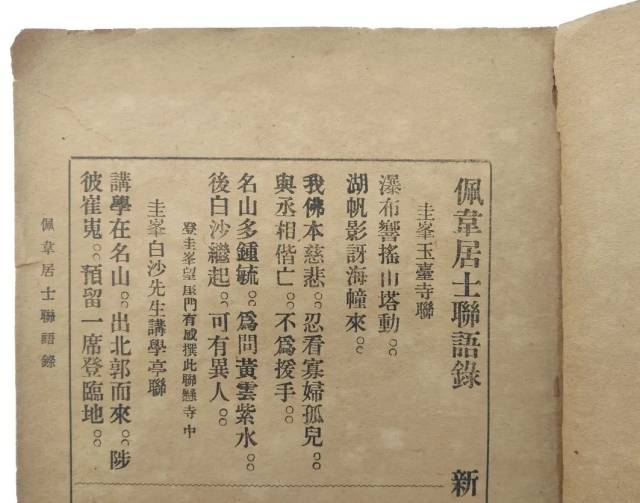 佩韋居士聯語錄
新
圭峯玉臺寺聯
瀑布響搖山塔動。
湖帆影訝海幢來。
我佛本慈悲。忍看寡婦孤兒。
與丞相偕亡。不爲援手。
名山多鍾毓。爲問黃雲紫水。
後白沙繼起。可有異人。
登圭峯望厓門有感撰此聯懸寺中
圭峯白沙先生講學亭聯
講學在名山。出北郭而來。陟
彼崔嵬。預留一席登臨地。
佩韋居士聯語錄